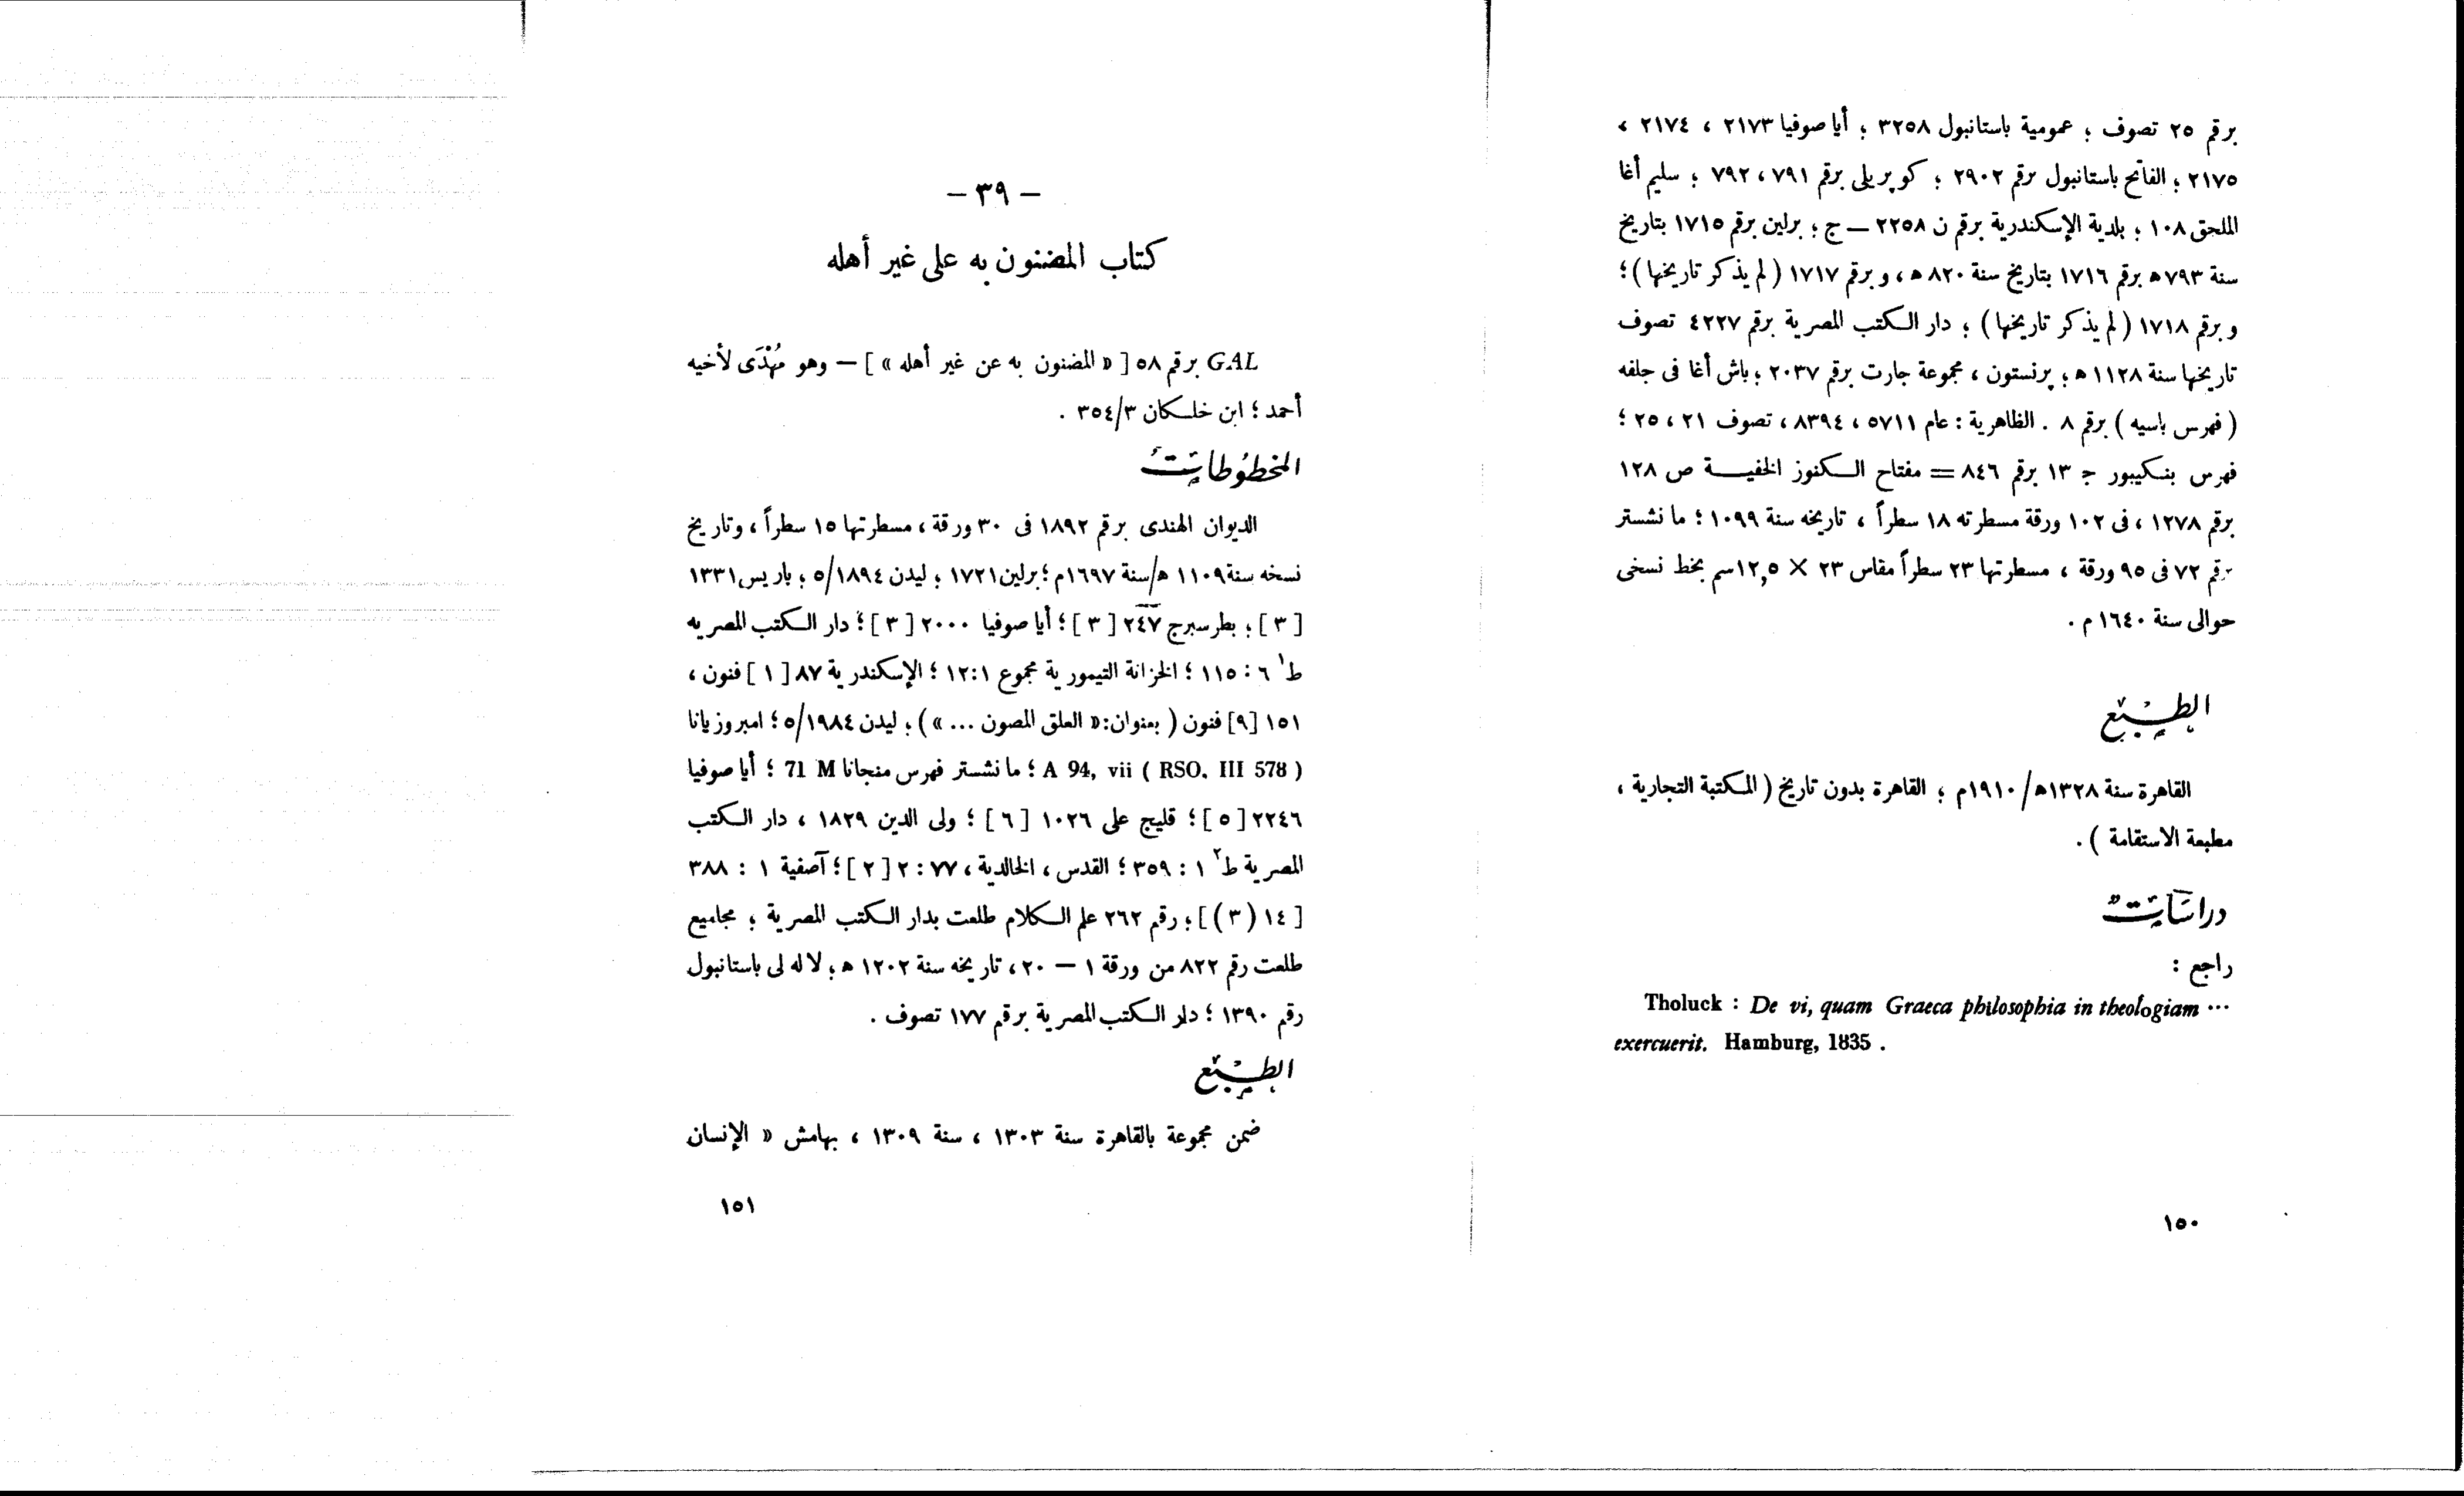 برقم ٢٥ تصوف ؛ عمومية باستانبول ٣٢٥٨ ؛ أيا صوفيا ٢١٧٣ ، ٢١٧٤ ،
٢١٧٥ ؛ الفاتح باستانبول برقم ٢٩٠٢ ؛ كوپريلى برقم ٧٩١ ، ٧٩٢ ؛ سليم أغا
الملحق ١٠٨ ؛ بلدية الإسكندرية برقم ن ٢٢٥٨ – ج ؛ برلين برقم ١٧١٥ بتاريخ
سنة ٧٩٣ ھ برقم ١٧١٦ بتاريخ سنة ٨٢٠ ھ ، وبرقم ١٧١٧ ( لم يذكر تاريخها ) ؛
وبرقم ١٧١٨ ( لم يذكر تاريخها ) ؛ دار الكتب المصرية برقم ٤٢٢٧ تصوف
تاريخها سنة ١١٢٨ ھ ؛ پرنستون ، مجموعة جارت برقم ٢٠٣٧ ؛ باش أغا فى جلفه
( فهرس باسيه ) برقم ٨ . الظاهرية : عام ٥٧١١ ، ٨٣٩٤ ، تصوف ٢١ ، ٢٥ ؛
فهرس بنكيبور ج ١٣ برقم ٨٤٦ = مفتاح الكنوز الخفية ص ١٢٨
برقم ١٢٧٨ ، فى ١٠٢ ورقة مسطرته ١٨ سطراً ، تاريخه سنة ١٠٩٩ ؛ مانشستر
برقم ٧٢ فى ٩٥ ورقة ، مسطرتها ٢٣ سطراً مقاس ٢٣ × ١٢,٥سم بخط نسخى
حوالى سنة ١٦٤٠ م .
الطبع
القاهرة سنة ١٣٢٨ھ/١٩١٠م ؛ القاهرة بدون تاريخ ( المكتبة التجارية ،
مطبعة الاستقامة ) .
دراسات
راجع :
Tholuck : De vi, quam Graeca philosophia in theologiam ...
exercuerit. Hamburg, 1835 .
١٥٠
– ٣٩ –
كتاب المضنون به على غير أهله
GAL برقم ٥٨ [ « المضنون به عن غير أهله » ] – وهو مُهْدَى لأخيه
أحمد ؛ ابن خلكان ٣/٣٥٤ .
المخطوطات
الديوان الهندى برقم ١٨٩٢ فى ٣٠ ورقة ، مسطرتها ١٥ سطراً ، وتاريخ
نسخه سنة ١١٠٩ ھ/سنة ١٦٩٧م ؛ برلين ١٧٢١ ؛ ليدن ٥/١٨٩٤ ؛ باريس ١٣٣١
[ ٣ ] ؛ بطرسبرج ٢٤٧ [ ٣ ] ؛ أيا صوفيا ٢٠٠٠ [ ٣ ] ؛ دار الكتب المصريه
ط١ ٦ : ١١٥ ؛ الخزانة التيمورية مجموع ١:١٢ ؛ الإسكندرية ٨٧ [ ١ ] فنون ،
١٥١ [٩] فنون ( بعنوان: « العلق المصون ... » ) ؛ ليدن ٥/١٩٨٤ ؛ امبروزيانا
A 94, vii ( RSO. III 578 ) ؛ مانشستر فهرس منجانا 71 M ؛ أيا صوفيا
٢٢٤٦ [ ٥ ] ؛ قليج على ١٠٢٦ [ ٦ ] ؛ ولى الدين ١٨٢٩ ، دار الكتب
المصرية ط٢ ١ : ٣٥٩ ؛ القدس ، الخالدية ، ٧٧ : ٢ [ ٢ ] ؛ آصفية ١ : ٣٨٨
[ ١٤ (٣) ] ؛ رقم ٢٦٢ علم الكلام طلعت بدار الكتب المصرية ؛ مجاميع
طلعت رقم ٨٢٢ من ورقة ١ – ٢٠ ، تاريخه سنة ١٢٠٢ ھ ؛ لاله لى باستانبول
رقم ١٣٩٠ ؛ دار الكتب المصرية برقم ١٧٧ تصوف .
الطبع
ضمن مجموعة بالقاهرة سنة ١٣٠٣ ، سنة ١٣٠٩ ، بهامش « الإنسان
١٥١